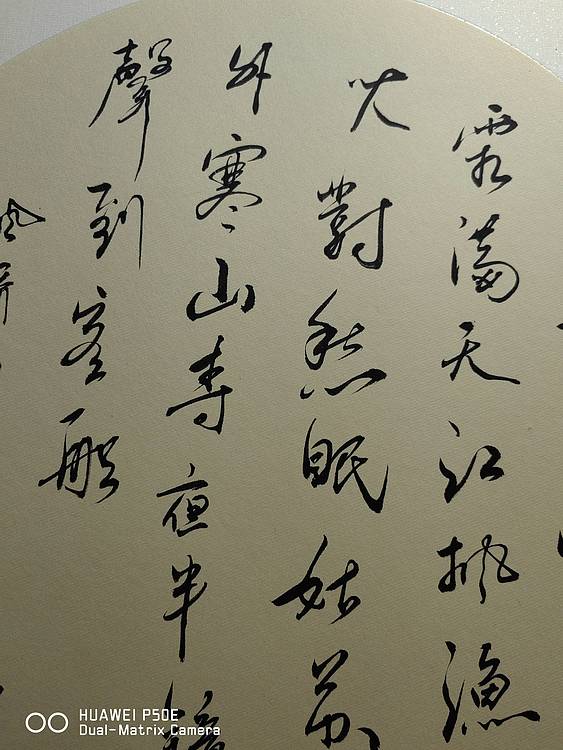 霜滿天江楓漁
火對愁眠姑蘇
外寒山寺夜半鐘
聲到客船
HUAWEI P50E
Dual-Matrix Camera